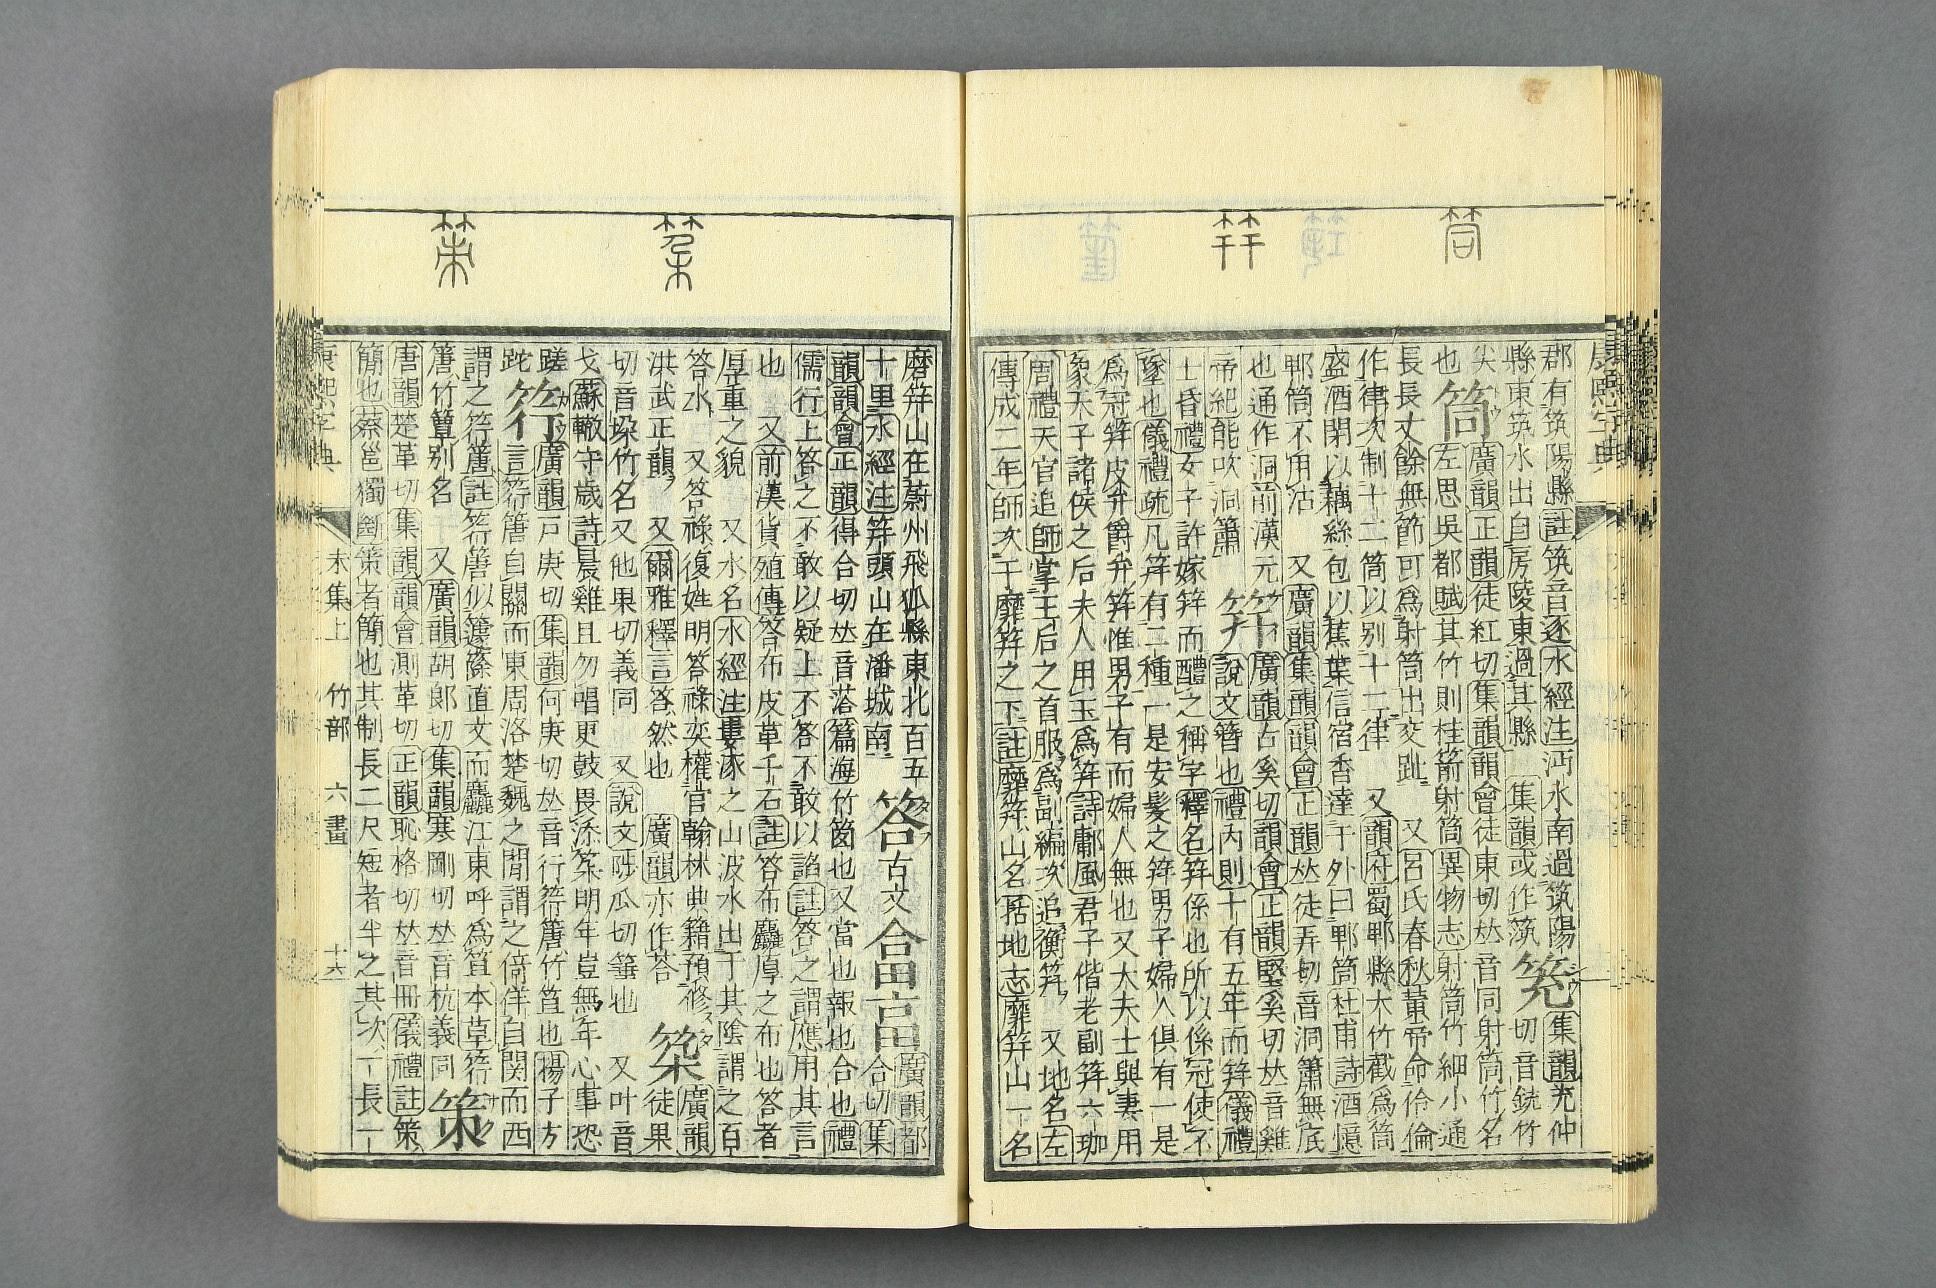 筒
筓
康熙字典
郡有筑陽縣註筑音逐水經注沔水南過筑陽
縣東筑水出自房陵東過其縣　集韻或作筑　筦集韻充仲切音銃竹
尖也　筒廣韻正韻徒紅切集韻韻會徒東切𠀤音同射筒竹名
左思吳都賦其竹則桂箭射筒異物志射筒竹細小通
長長丈餘無節可爲射筒出交趾　又呂氏春秋黃帝命伶倫
作律次制十二筒以別十二律　又韻府蜀郫縣大竹截爲筒
盛酒閉以藕絲包以蕉葉信宿香達于外曰郫筒杜甫詩酒憶
郫筒不用沽　又廣韻集韻韻會正韻𠀤徒弄切音洞簫無底
也通作洞前漢元帝紀能吹洞簫
筓笄廣韻古奚切韻會正韻堅奚切𠀤音雞
說文簪也禮內則十有五年而筓儀禮
士昏禮女子許嫁筓而醴之稱字釋名筓係也所以係冠使不
墜也儀禮疏凡筓有二種一是安髮之筓男子婦人俱有一是
爲冠筓皮弁爵弁筓惟男子有而婦人無也又大夫士與妻用
象天子諸侯之后夫人用玉爲筓詩鄘風君子偕老副筓六珈
周禮天官追師掌王后之首服爲副編次追衡筓　又地名左
傳成二年師次于靡筓之下註靡筓山名括地志靡筓山一名
𥬰
策
磨筓山在蔚州飛狐縣東北百五
十里水經注筓頭山在潘城南　答古文畣𠶷廣韻都合切集
韻韻會正韻得合切𠀤音荅篇海竹䈑也又當也報也合也禮
儒行上答之不敢以疑上不答不敢以諂註答之謂應用其言
也　又前漢貨殖傳答布皮革千石註答布麤厚之布也答者
厚重之貌　又水名水經注婁涿之山波水出于其陰謂之百
答水　又答祿復姓明答祿奕權官翰林典籍預修
洪武正韻　又爾雅釋言答然也　廣韻亦作荅　𥬰廣韻徒果
切音垛竹名又他果切義同　又說文陟瓜切箠也　又叶音
戈蘇轍守歲詩晨雞且勿唱更鼓畏添𥬰明年豈無年心事恐
蹉跎　筕廣韻戸庚切集韻何庚切𠀤音行筕篖竹笪也揚子方
言筕篖自關而東周洛楚魏之閒謂之倚佯自関而西
謂之筕篖註筕篖似籧篨直文而麤江東呼爲笪本草筕
篖竹簟別名　又廣韻胡郎切集韻寒剛切𠀤音杭義同　策
唐韻楚革切集韻韻會測革切正韻恥格切𠀤音冊儀禮註策
簡也蔡邕獨斷策者簡也其制長二尺短者半之其次一長一
康熙字典　未集上　竹部　六畫　十六